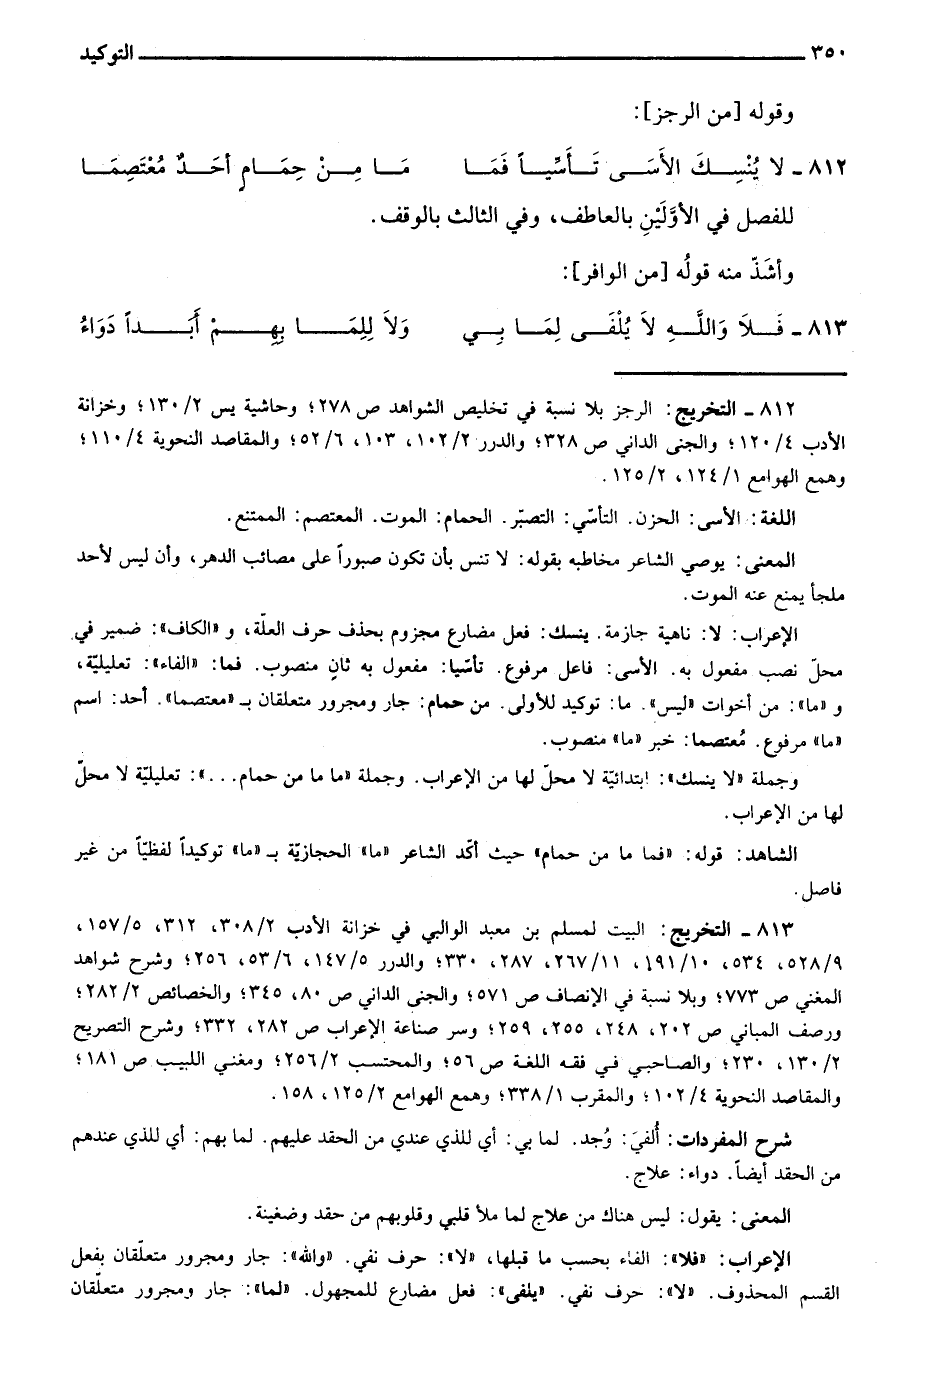 ٣٥٠ التوكيد
وقوله [من الرجز]:
٨١٢ ـ لا يُنْسِكَ الأَسَى تَأَسِّياً فَمَا مَا مِنْ حِمَامٍ أَحَدٌ مُعْتَصِمَا
للفصل في الأوَّلَيْنِ بالعاطف، وفي الثالث بالوقف.
وأشَذّ منه قولُه [من الوافر]:
٨١٣ ـ فَلاَ وَاللَّهِ لاَ يُلْفَى لِمَا بِي وَلاَ لِلِمَا بِهِمْ أَبَداً دَوَاءُ
٨١٢ ـ التخريج: الرجز بلا نسبة في تخليص الشواهد ص ٢٧٨؛ وحاشية يس ٢/ ١٣٠؛ وخزانة
الأدب ٤/ ١٢٠؛ والجنى الداني ص ٣٢٨؛ والدرر ٢/ ١٠٢، ١٠٣، ٦/ ٥٢؛ والمقاصد النحوية ٤/ ١١٠؛
وهمع الهوامع ١/ ١٢٤، ٢/ ١٢٥.
اللغة: الأسى: الحزن. التأسّي: التصبّر. الحمام: الموت. المعتصم: الممتنع.
المعنى: يوصي الشاعر مخاطبه بقوله: لا تنس بأن تكون صبوراً على مصائب الدهر، وأن ليس لأحد
ملجأ يمنع عنه الموت.
الإعراب: لا: ناهية جازمة. ينسك: فعل مضارع مجزوم بحذف حرف العلّة، و «الكاف»: ضمير في
محلّ نصب مفعول به. الأسى: فاعل مرفوع. تأسّيا: مفعول به ثانٍ منصوب. فما: «الفاء»: تعليليّة،
و «ما»: من أخوات «ليس». ما: توكيد للأولى. من حمام: جار ومجرور متعلقان بـ «معتصما». أحد: اسم
«ما» مرفوع. مُعتصما: خبر «ما» منصوب.
وجملة «لا ينسك»: ابتدائيّة لا محلّ لها من الإعراب. وجملة «ما ما من حمام...»: تعليليّة لا محلّ
لها من الإعراب.
الشاهد: قوله: «فما ما من حمام» حيث أكّد الشاعر «ما» الحجازيّة بـ «ما» توكيداً لفظيّاً من غير
فاصل.
٨١٣ ـ التخريج: البيت لمسلم بن معبد الوالبي في خزانة الأدب ٢/ ٣٠٨، ٣١٢، ٥/ ١٥٧،
٩/ ٥٢٨، ٥٣٤، ١٠/ ١٩١، ١١/ ٢٦٧، ٢٨٧، ٣٣٠؛ والدرر ٥/ ١٤٧، ٦/ ٥٣، ٢٥٦؛ وشرح شواهد
المغني ص ٧٧٣؛ وبلا نسبة في الإنصاف ص ٥٧١؛ والجنى الداني ص ٨٠، ٣٤٥؛ والخصائص ٢/ ٢٨٢؛
ورصف المباني ص ٢٠٢، ٢٤٨، ٢٥٥، ٢٥٩؛ وسر صناعة الإعراب ص ٢٨٢، ٣٣٢؛ وشرح التصريح
٢/ ١٣٠، ٢٣٠؛ والصاحبي في فقه اللغة ص ٥٦؛ والمحتسب ٢/ ٢٥٦؛ ومغني اللبيب ص ١٨١؛
والمقاصد النحوية ٤/ ١٠٢؛ والمقرب ١/ ٣٣٨؛ وهمع الهوامع ٢/ ١٢٥، ١٥٨.
شرح المفردات: أُلفيَ: وُجد. لما بي: أي للذي عندي من الحقد عليهم. لما بهم: أي للذي عندهم
من الحقد أيضاً. دواء: علاج.
المعنى: يقول: ليس هناك من علاج لما ملأ قلبي وقلوبهم من حقد وضغينة.
الإعراب: «فلا»: الفاء بحسب ما قبلها، «لا»: حرف نفي. «والله»: جار ومجرور متعلّقان بفعل
القسم المحذوف. «لا»: حرف نفي. «يلفى»: فعل مضارع للمجهول. «لما»: جار ومجرور متعلّقان